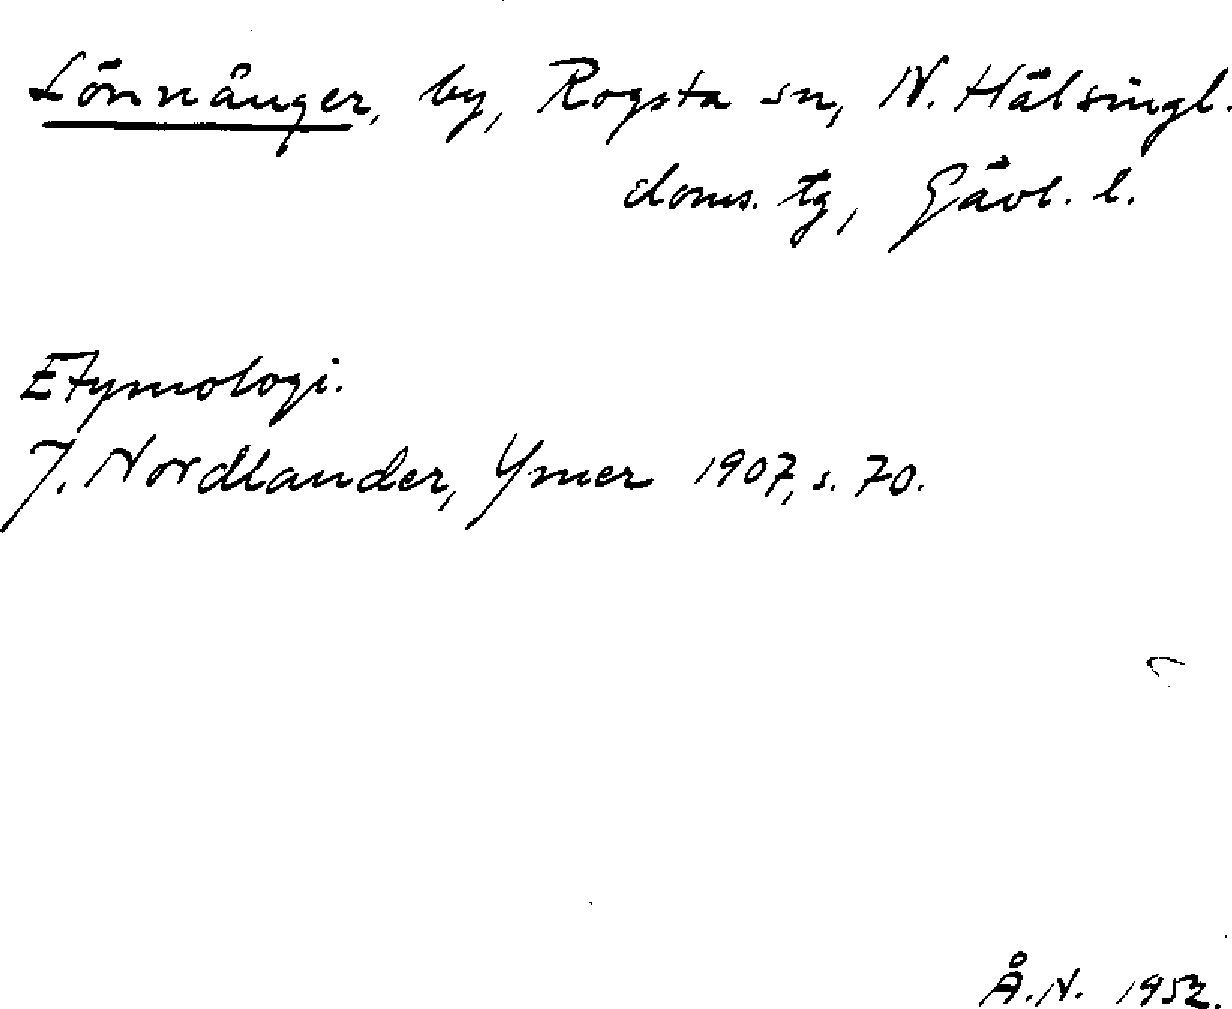 Lönnånger, by, Rogsta sn, N. Hälsingl.
doms. tg, Gävl. l.
Etymologi.
J. Nordlander, Ymer 1907, s. 70.
Å.N. 1952.